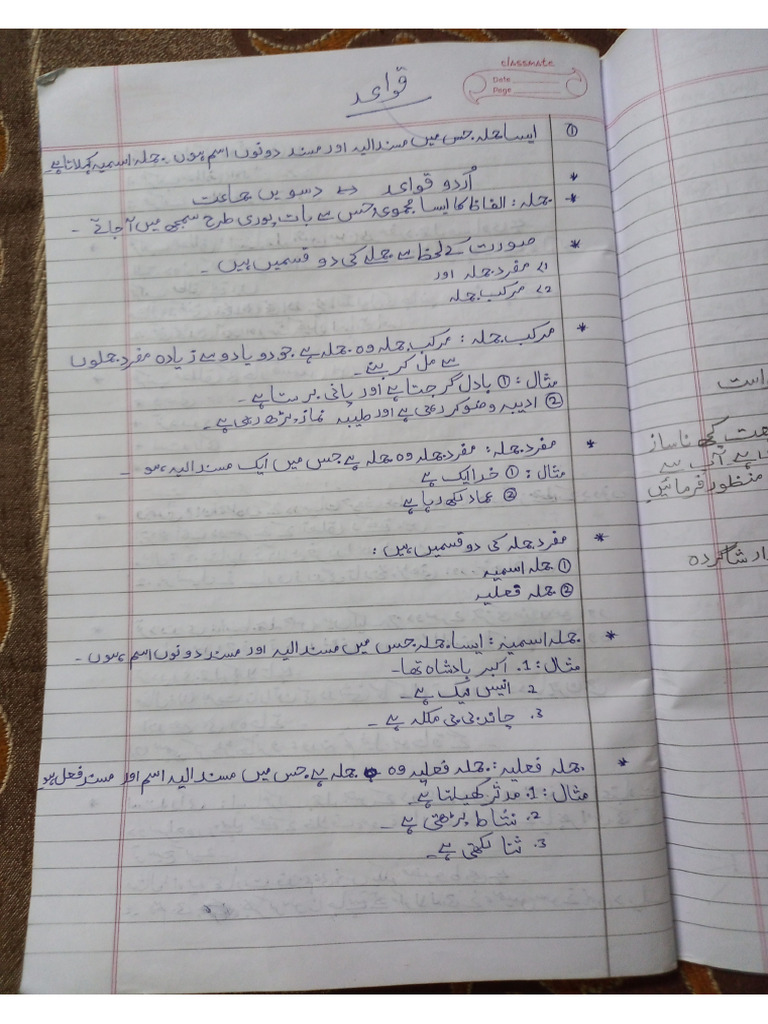 classmate
Date
Page
قواعد
① ایسا جملہ جس میں مسند الیہ اور مسند دونوں اسم ہوں۔ جملہ اسمیہ کہلاتا ہے
* اُردو قواعد ↔ دسویں جماعت
* جملہ : الفاظ کا ایسا مجموعہ جس سے بات پوری طرح سمجھ میں آجائے ۔
* صورت کے لحاظ سے جملے کی دو قسمیں ہیں ۔
1) مفرد جملہ اور
2) مرکب جملہ
* مرکب جملہ : مرکب جملہ وہ جملہ ہے جو دو یا دو سے زیادہ مفرد جملوں
سے مل کر بنے ۔
مثال : ① بادل گرجتا ہے اور پانی برستا ہے ۔
② ادیبہ وضو کر رہی ہے اور طیبہ نماز پڑھ رہی ہے ۔
* مفرد جملہ : مفرد جملہ وہ جملہ ہے جس میں ایک مسند الیہ ہو ۔
مثال : ① خدا ایک ہے
② عماد لکھ رہا ہے
* مفرد جملہ کی دو قسمیں ہیں :
① جملہ اسمیہ
② جملہ فعلیہ
* جملہ اسمیہ : ایسا جملہ جس میں مسند الیہ اور مسند دونوں اسم ہوں ۔
مثال : 1. اکبر بادشاہ تھا ۔
2. انیس نیک ہے ۔
3. چاند بی بی ملکہ ہے ۔
* جملہ فعلیہ : جملہ فعلیہ وہ جملہ ہے جس میں مسند الیہ اسم اور مسند فعل ہو
مثال : 1. مدثر کھیلتا ہے ۔
2. نشاط پڑھتی ہے ۔
3. ثنا لکھتی ہے ۔
کچھ ناساز
ہے آپ سے
منظور فرمائیں
شاگردہ